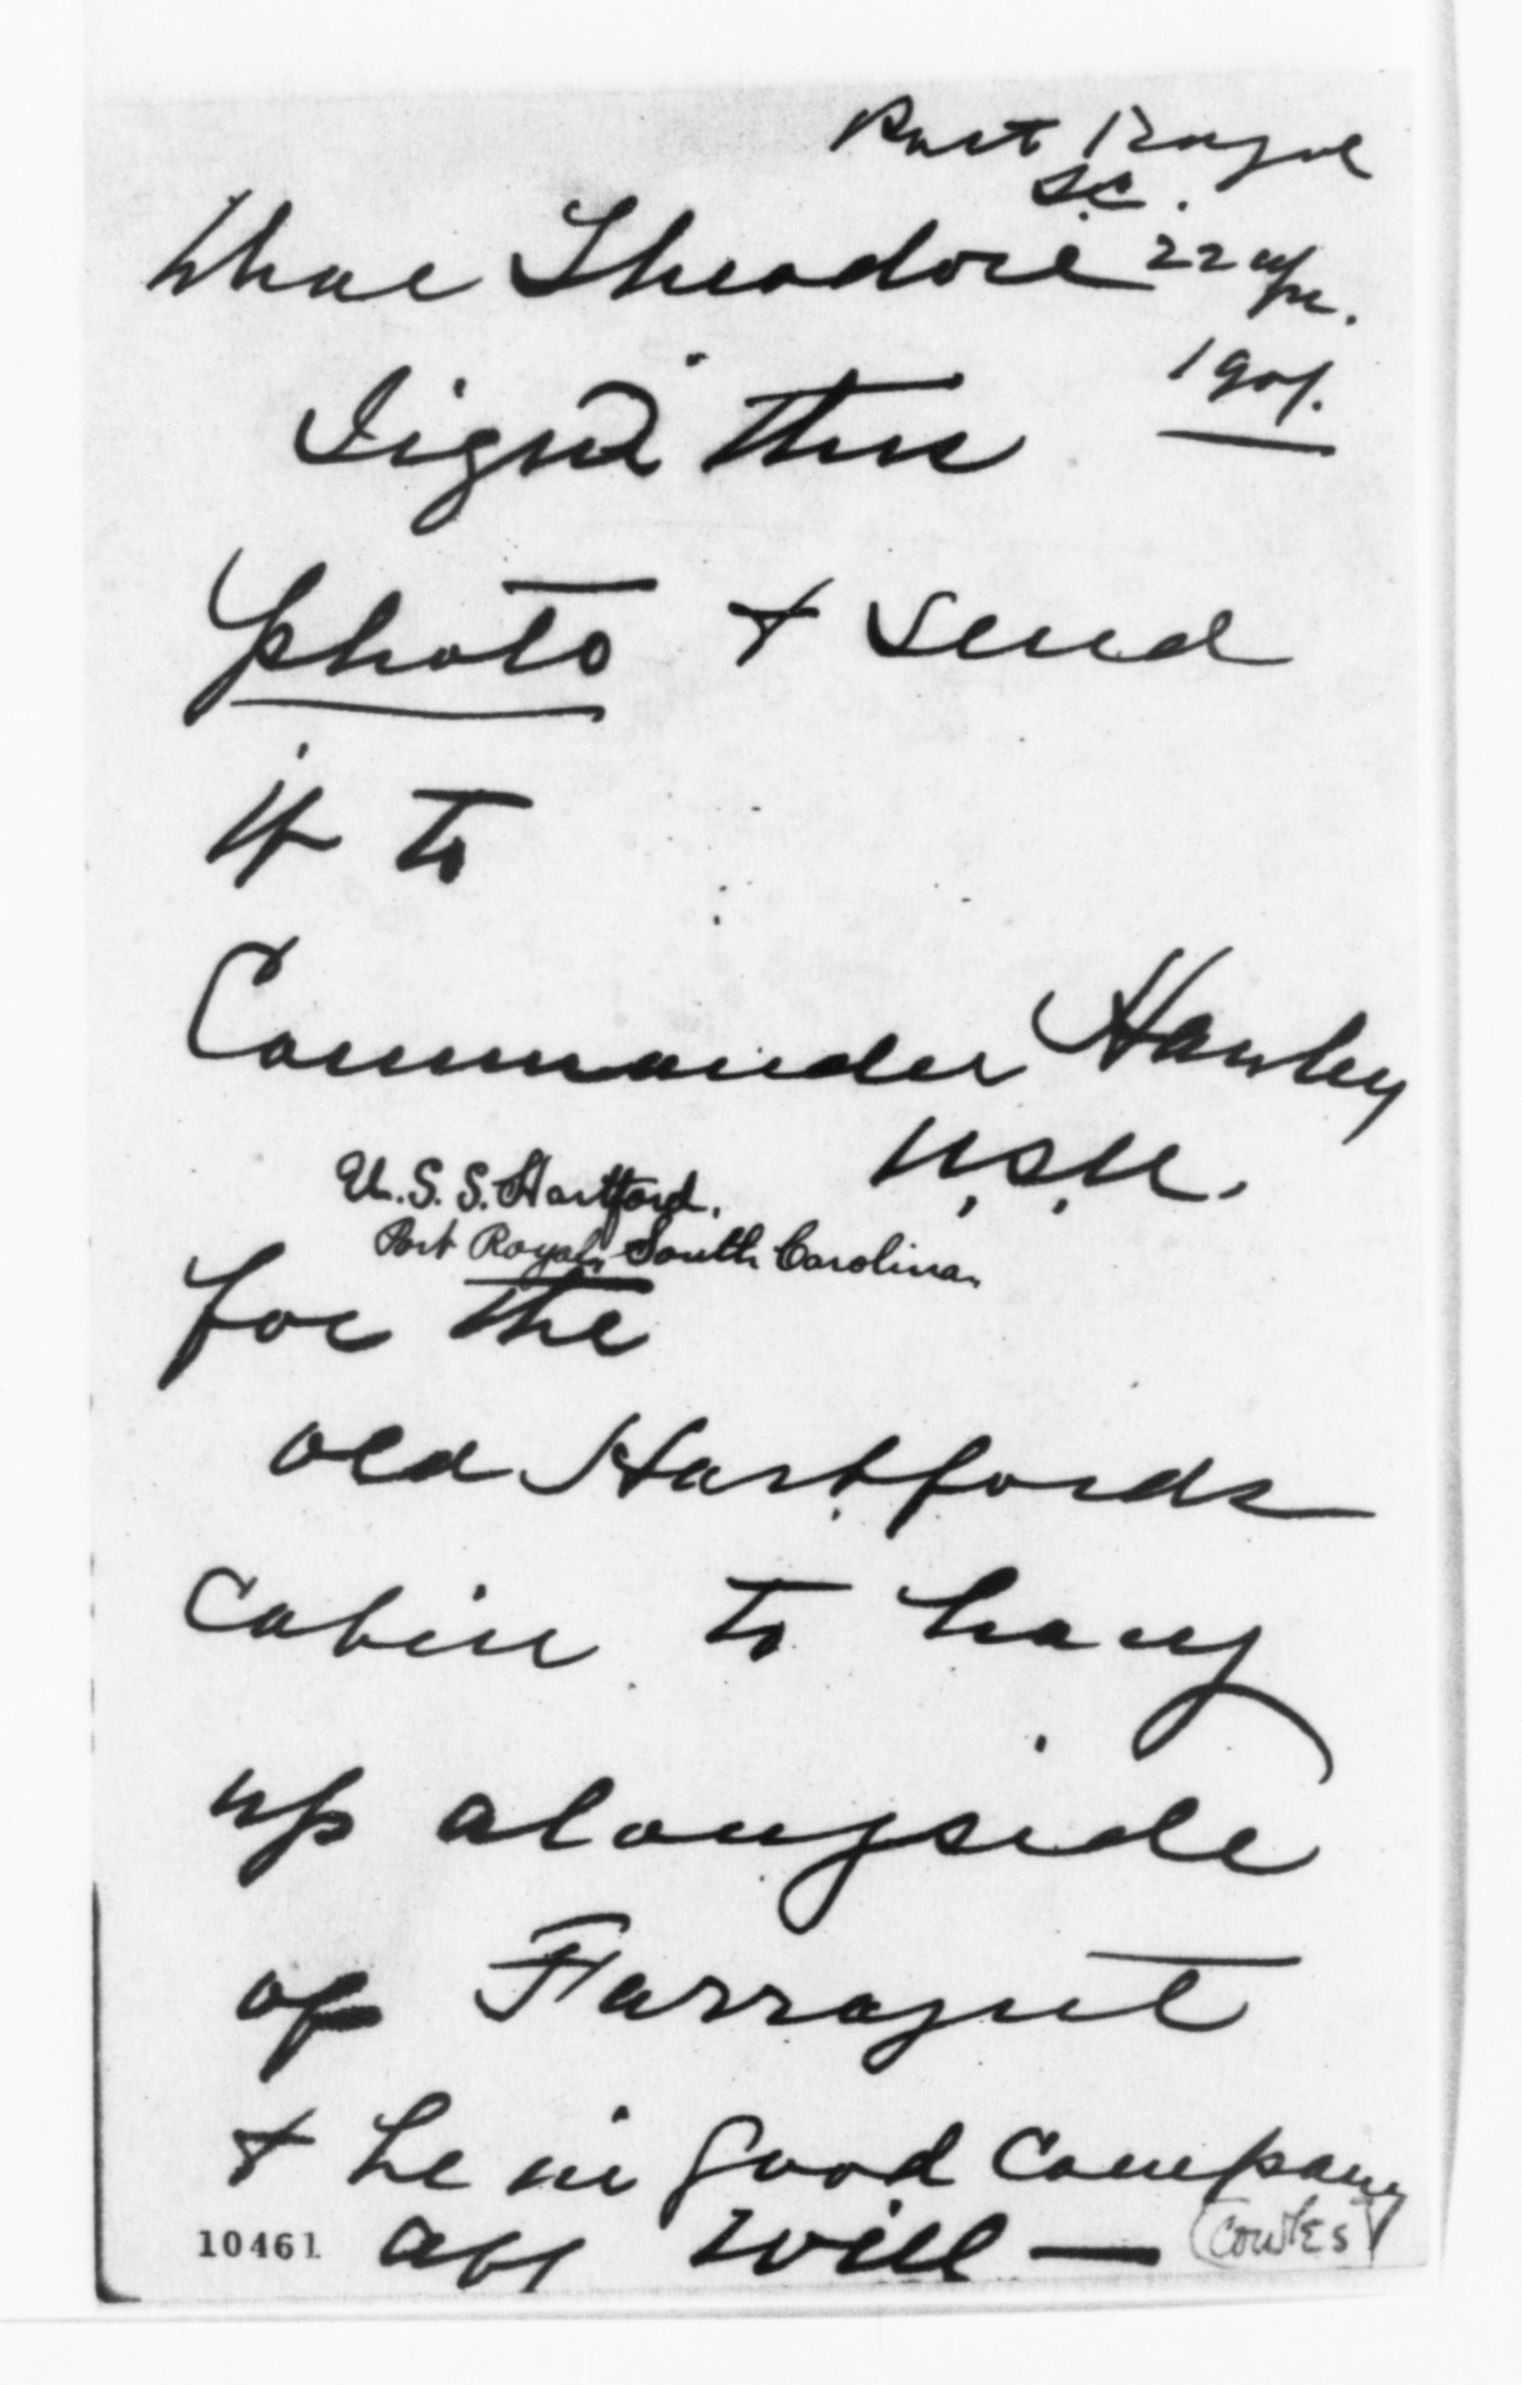 Port Royal
S.C.
22 Apr.
1901.
Dear Theodore
Sign this
photo & send
it to
Commander Hawley
U.S.N.
U.S.S. Hartford.
Port Royal, South Carolina.
for the
old Hartfords
Cabin to hang
up alongside
of Farragut
& be in good Company
Aff Will —
[Cowles]
10461